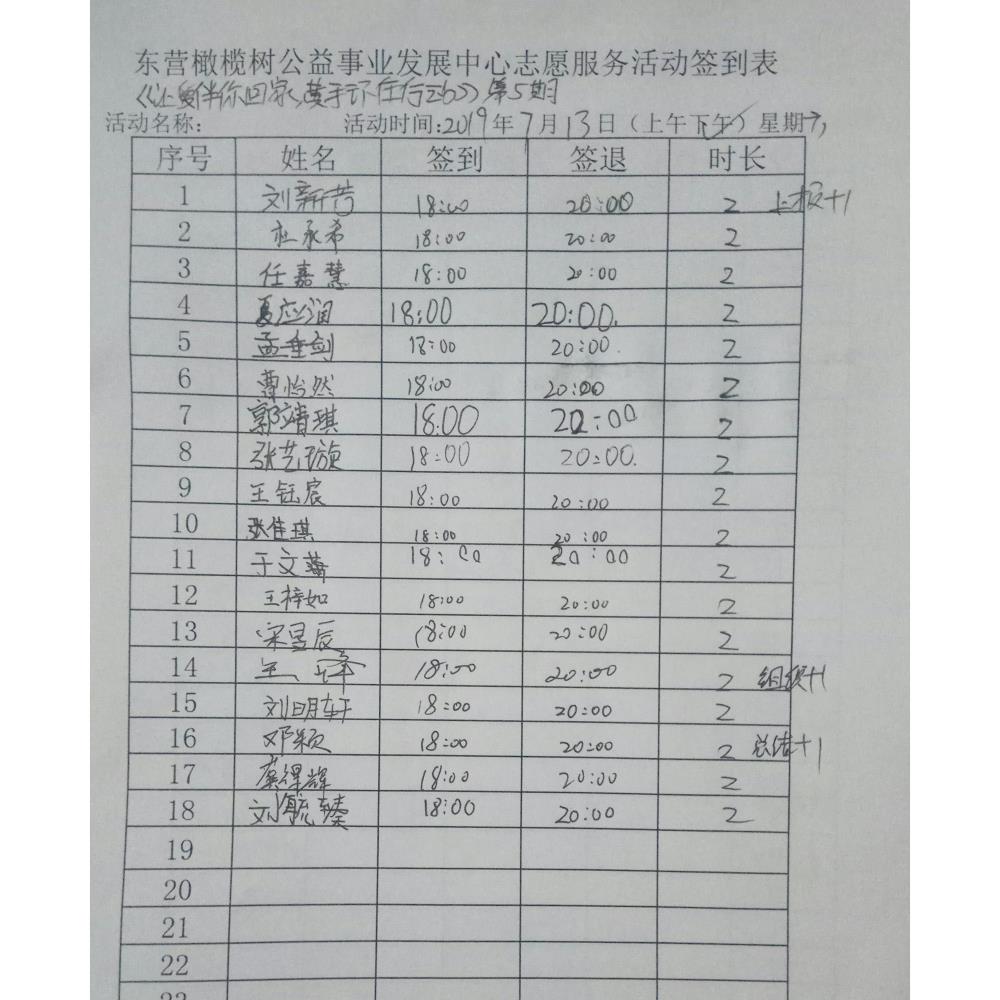 东营橄榄树公益事业发展中心志愿服务活动签到表
《让爱伴你回家，携手环在行动》第5期
活动名称: 活动时间:2019年7月13日（上午下午）星期六
序号 姓名 签到 签退 时长
1 刘新芳 18:00 20:00 2 上报+1
2 杜承希 18:00 20:00 2
3 任嘉慧 18:00 20:00 2
4 夏应润 18:00 20:00. 2
5 孟垂剑 18:00 20:00. 2
6 曹怡然 18:00 20:00 2
7 郭靖琪 18:00 20:00 2
8 张艺璇 18:00 20:00. 2
9 王钰宸 18:00 20:00 2
10 张佳琪 18:00 20:00 2
11 于文 18:00 20:00 2
12 王梓如 18:00 20:00 2
13 宋昱辰 18:00 20:00 2
14 18:00 20:00 2 组织+1
15 刘明轩 18:00 20:00 2
16 邓颖 18:00 20:00 2 总结+1
17 18:00 20:00 2
18 刘毓臻 18:00 20:00 2
19
20
21
22
23